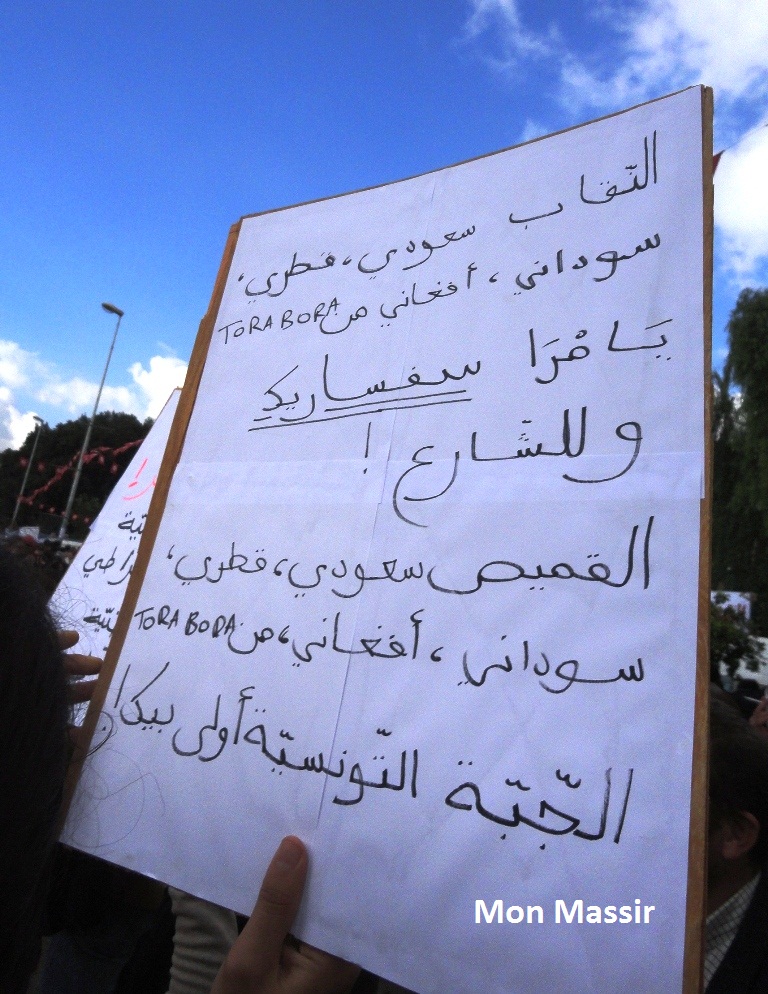 النّقاب سعودي، قطري،
سوداني، أفغاني من TORA BORA
يَا مْرَا سفساريك
وللشّارع !
القميص سعودي، قطري،
سوداني، أفغاني، من TORA BORA
الجّبّة التّونسيّة أولى بيك!
Mon Massir